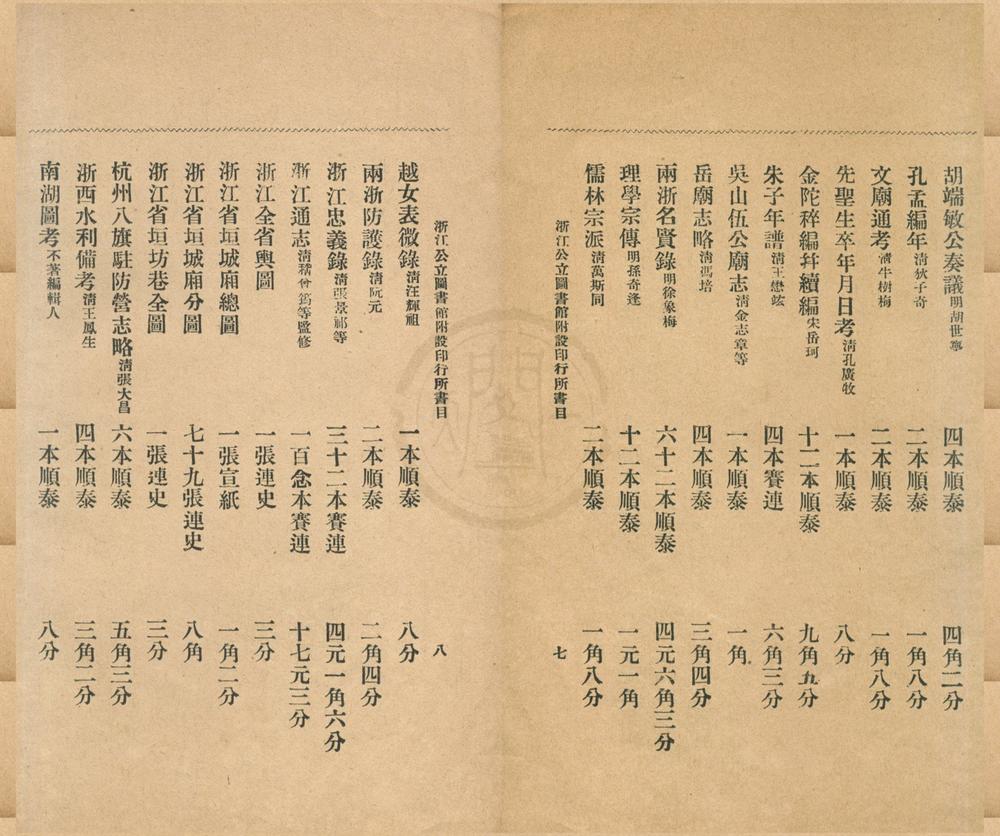 胡端敏公奏議明胡世寧 四本順泰 四角二分
孔孟編年清狄子奇 二本順泰 一角八分
文廟通考清牛樹梅 二本順泰 一角八分
先聖生卒年月日考清孔廣牧 一本順泰 八分
金陀稡編幷續編宋岳珂 十二本順泰 九角五分
朱子年譜清王懋竑 四本賽連 六角三分
吳山伍公廟志清金志章等 一本順泰 一角
岳廟志略清馮培 四本順泰 三角四分
兩浙名賢錄明徐象梅 六十二本順泰 四元六角三分
理學宗傳明孫奇逢 十二本順泰 一元一角
儒林宗派清萬斯同 二本順泰 一角八分
浙江公立圖書館附設印行所書目 七
浙江公立圖書館附設印行所書目 八
越女表微錄清汪輝祖 一本順泰 八分
兩浙防護錄清阮元 二本順泰 二角四分
浙江忠義錄清張景祁等 三十二本賽連 四元一角六分
浙江通志清嵇曾筠等監修 一百念本賽連 十七元三分
浙江全省輿圖 一張連史 三分
浙江省垣城廂總圖 一張宣紙 一角二分
浙江省垣城廂分圖 七十九張連史 八角
浙江省垣坊巷全圖 一張連史 三分
杭州八旗駐防營志略清張大昌 六本順泰 五角三分
浙西水利備考清王鳳生 四本順泰 三角二分
南湖圖考不著編輯人 一本順泰 八分